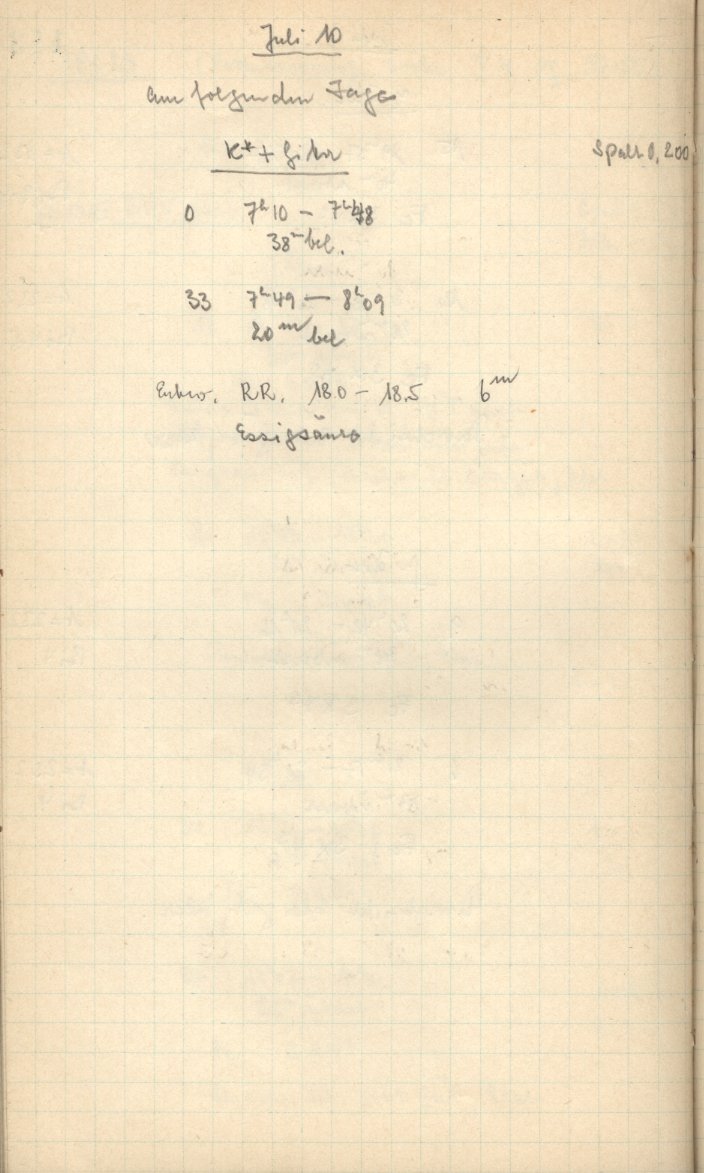 Juli 10
am folgenden Tage
K* + Gitter Spalt 0,200
0 7h10 – 7h48
38m bel.
33 7h49 — 8h09
20m bel
Entw. RR. 18.0 – 18.5 6m
Essigsäure